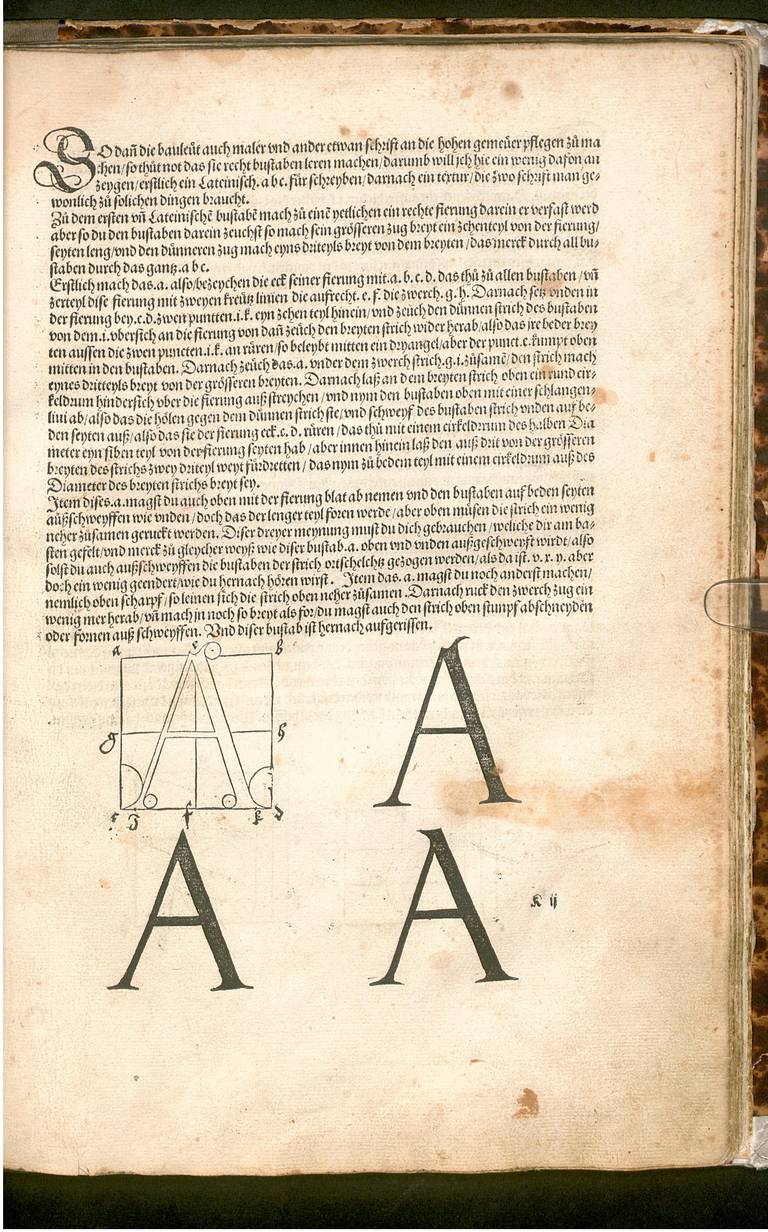 SO dañ die bauleüt auch maler vnd ander etwan schrift an die hohen gemeüer pflegen zů ma
chen/so thůt not das sie recht bůstaben leren machen/darumb will jch hie ein wenig dafon an
zeygen/erstlich ein Lateinisch. a b c. für schreyben/darnach ein textur/die zwo schrift man ge-
wonlich zů solichen dingen braucht.
Zů dem ersten vñ Lateinischē bustabē mach zů einē yetlichen ein rechte fierung darein er verfast werd
aber so du den bustaben darein zeuchst so mach sein grösseren zug breyt ein zehenteyl von der fierung/
seyten leng/vnd den dünneren zug mach eyns driteyls breyt von dem breyten/das merck durch all bu-
staben durch das gantz. a b c.
Erstlich mach das .a. also/bezeychen die eck seiner fierung mit .a. b. c. d. das thů zů allen bustaben/vñ
zerteyl dise fierung mit zweyen kreütz linien die aufrecht. e. f. die zwerch. g. h. Darnach setz vnden in
der fierung bey .c. d. zwen puncten .i. k. eyn zehen teyl hinein/vnd zeüch den dünnen strich des bustaben
von dem .i. vbersich an die fierung von dañ zeüch den breyten strich wider herab/also das jre beder brey
ten aussen die zwen puncten .i. k. an rüren/so beleybt mitten ein dryangel/aber der punct .e. kumpt oben
mitten in den bustaben. Darnach zeüch das .a. vnder dem zwerch strich .g. i. züsamē/den strich mach
eynes dritteyls breyt von der grösseren breyten. Darnach laß an dem breyten strich oben ein rund cir-
keldrum hindersich vber die fierung auß streychen/vnd nym den bustaben oben mit einer schlangen-
lini ab/also das die hölen gegen dem dünnen strich ste/vnd schweyf des bustaben strich vnden auf be-
den seyten auß/also das sie der fierung eck .c. d. rüren/das thů mit einem cirkeldrum des halben Dia
meter eyn siben teyl von der fierung seyten hab/aber innen hinein laß den auß drit von der grösseren
breyten des strichs zwey driteyl weyt fürdretten/das nym zů bedem teyl mit einem cirkeldrum auß des
Diameter des breyten strichs breyt sey.
Item dises .a. magst du auch oben mit der fierung blat ab nemen vnd den bustaben auf beden seyten
außschweyffen wie vnden/doch das der lenger teyl foren werde/aber oben müsen die strich ein wenig
neher züsamen geruckt werden. Diser dreyer meynung must du dich gebrauchen/weliche dir am ba-
sten gefelt/vnd merck zů gleycher weyß wie diser bustab .a. oben vnd vnden außgeschweyft wirdt/also
solst du auch außschweyffen die bustaben der strich ortschelchtz gezogen werden/als da ist. v. x. y. aber
doch ein wenig geendert/wie du hernach hören wirst. Item das .a. magst du noch anderst machen/
nemlich oben scharpf/so leinen sich die strich oben neher züsamen. Darnach ruck den zwerch zug ein
wenig mer herab/vñ mach jn noch so breyt als for/du magst auch den strich oben stumpf abschneyden
oder fornen auß schweyffen. Vnd diser bustab ist hernach aufgerissen.
a e b
g h
c J f k d
A
A A
K ij